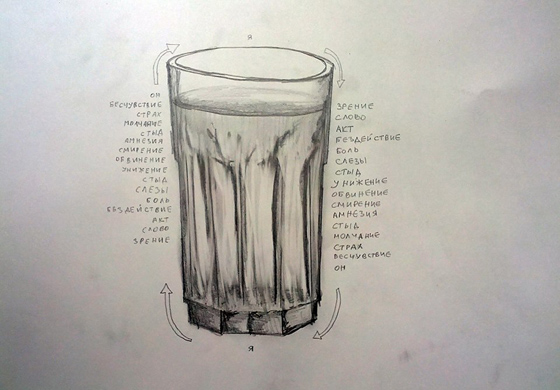 Я
ОН
БЕСЧУВСТВИЕ
СТРАХ
МОЛЧАНИЕ
СТЫД
АМНЕЗИЯ
СМИРЕНИЕ
ОБВИНЕНИЕ
УНИЖЕНИЕ
СТЫД
СЛЕЗЫ
БОЛЬ
БЕЗДЕЙСТВИЕ
АКТ
СЛОВО
ЗРЕНИЕ
ЗРЕНИЕ
СЛОВО
АКТ
БЕЗДЕЙСТВИЕ
БОЛЬ
СЛЕЗЫ
СТЫД
УНИЖЕНИЕ
ОБВИНЕНИЕ
СМИРЕНИЕ
АМНЕЗИЯ
СТЫД
МОЛЧАНИЕ
СТРАХ
БЕСЧУВСТВИЕ
ОН
Я